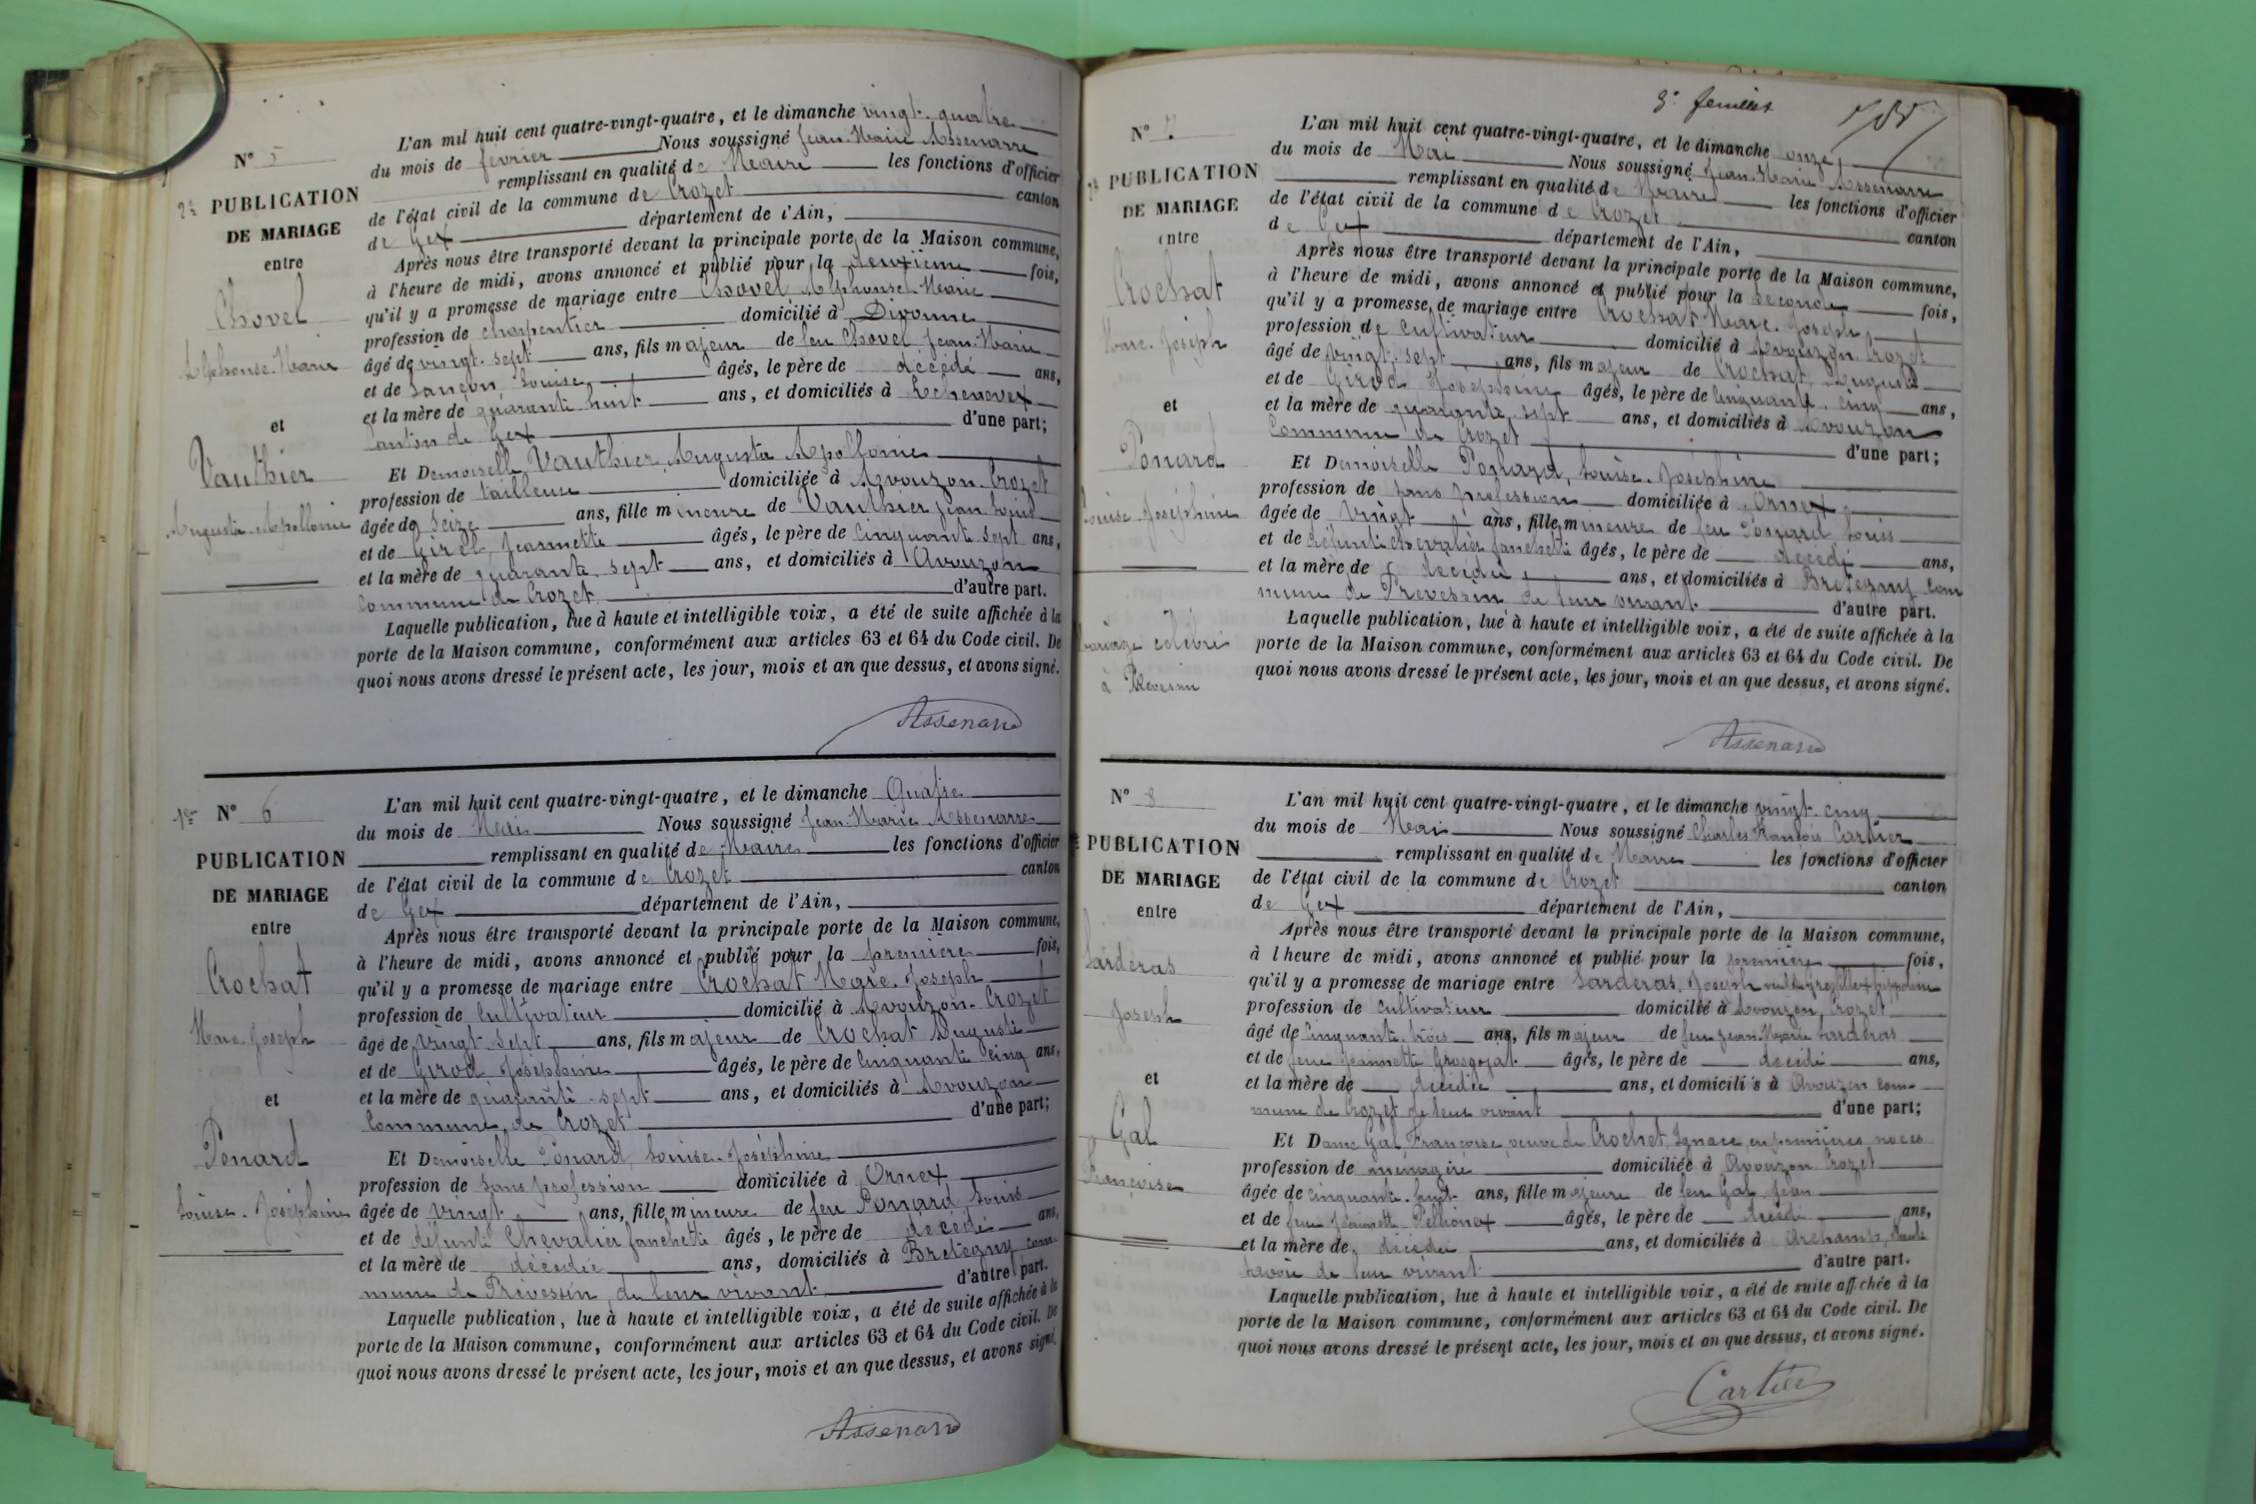 N° 5
2e PUBLICATION
DE MARIAGE
entre
Chovel
Alphonse-Marie
et
Vauthier
Augusta Apolloine
L'an mil huit cent quatre-vingt-quatre, et le dimanche vingt-quatre
du mois de février Nous soussigné Jean-Marie Assenare
remplissant en qualité de Maire les fonctions d'officier
de l'état civil de la commune de Crozet canton
de Gex département de l'Ain,
Après nous être transporté devant la principale porte de la Maison commune,
à l'heure de midi, avons annoncé et publié pour la deuxième fois,
qu'il y a promesse de mariage entre Chovel Alphonse-Marie
profession de charpentier domicilié à Divonne
âgé de vingt-sept ans, fils majeur de feu Chovel Jean-Marie
et de Lançon Louise âgés, le père de décédé ans,
et la mère de quarante-huit ans, et domiciliés à Echenevex
Canton de Gex d'une part;
Et Demoiselle Vauthier Augusta Apolloine
profession de tailleuse domiciliée à Avouzon-Crozet
âgée de seize ans, fille mineure de Vauthier Jean Louis
et de Girel, Jeannette âgés, le père de Cinquante sept ans,
et la mère de quarante-sept ans, et domiciliés à Avouzon
commune de Crozet d'autre part.
Laquelle publication, lue à haute et intelligible voix, a été de suite affichée à la
porte de la Maison commune, conformément aux articles 63 et 64 du Code civil. De
quoi nous avons dressé le présent acte, les jour, mois et an que dessus, et avons signé.
Assenard
1re N° 6
PUBLICATION
DE MARIAGE
entre
Crochat
Marc-Joseph
et
Ponard
Louise-Joséphine
L'an mil huit cent quatre-vingt-quatre, et le dimanche Quatre
du mois de Mai Nous soussigné Jean-Marie Assenarre
remplissant en qualité de Maire les fonctions d'officier
de l'état civil de la commune de Crozet canton
de Gex département de l'Ain,
Après nous être transporté devant la principale porte de la Maison commune,
à l'heure de midi, avons annoncé et publié pour la première fois,
qu'il y a promesse de mariage entre Crochat Marc-Joseph
profession de Cultivateur domicilié à Avouzon-Crozet
âgé de vingt-sept ans, fils majeur de Crochat Auguste
et de Girod Joséphine âgés, le père de Cinquante cinq ans,
et la mère de quarante-sept ans, et domiciliés à Avouzon
Commune de Crozet d'une part;
Et Demoiselle Ponard, Louise-Joséphine
profession de sans profession domiciliée à Ornex
âgée de vingt ans, fille mineure de feu Ponard Louis
et de défunte Chevalier fanchette âgés, le père de décédé ans,
et la mère de décédée ans, domiciliés à Bretegny com
mune de Prévessin de leur vivant d'autre part.
Laquelle publication, lue à haute et intelligible voix, a été de suite affichée à la
porte de la Maison commune, conformément aux articles 63 et 64 du Code civil. De
quoi nous avons dressé le présent acte, les jour, mois et an que dessus, et avons signé.
Assenard
3e feuillet
N° 7
2e PUBLICATION
DE MARIAGE
entre
Crochat
Marc-Joseph
et
Ponard
Louise-Joséphine
mariage célébré
à Prévessin
L'an mil huit cent quatre-vingt-quatre, et le dimanche onze
du mois de Mai Nous soussigné Jean-Marie Assenarre
remplissant en qualité de Maire les fonctions d'officier
de l'état civil de la commune de Crozet canton
de Gex département de l'Ain,
Après nous être transporté devant la principale porte de la Maison commune,
à l'heure de midi, avons annoncé et publié pour la seconde fois,
qu'il y a promesse de mariage entre Crochat Marc-Joseph
profession de Cultivateur domicilié à Avouzon Crozet
âgé de vingt-sept ans, fils majeur de Crochat, Auguste
et de Girod Joséphine âgés, le père de Cinquante-cinq ans,
et la mère de quarante sept ans, et domiciliés à Avouzon
Commune de Crozet d'une part;
Et Demoiselle Ponard, Louise-Joséphine
profession de sans profession domiciliée à Ornex
âgée de vingt ans, fille mineure de feu Ponard, Louis
et de défunte Chevalier fanchette âgés, le père de décédé ans,
et la mère de décédée ans, et domiciliés à Bretegny com
mune de Prévessin de leur vivant d'autre part.
Laquelle publication, lue à haute et intelligible voix, a été de suite affichée à la
porte de la Maison commune, conformément aux articles 63 et 64 du Code civil. De
quoi nous avons dressé le présent acte, les jour, mois et an que dessus, et avons signé.
Assenard
N° 8
PUBLICATION
DE MARIAGE
entre
Sarderas
Joseph
et
Gal
Françoise
L'an mil huit cent quatre-vingt-quatre, et le dimanche vingt-cinq
du mois de Mai Nous soussigné Charles François Cartier
remplissant en qualité de Maire les fonctions d'officier
de l'état civil de la commune de Crozet canton
de Gex département de l'Ain,
Après nous être transporté devant la principale porte de la Maison commune,
à l'heure de midi, avons annoncé et publié pour la première fois,
qu'il y a promesse de mariage entre Sarderas, Joseph
profession de cultivateur domicilié à Avouzon, Crozet
âgé de Cinquante-trois ans, fils majeur de feu Jean-Marie Sarderas
et de feue Jeannette Grosgojat âgés, le père de décédé ans,
et la mère de décédée ans, et domiciliés à Avouzon com-
mune de Crozet de leur vivant d'une part;
Et Dame Gal Françoise, veuve de Crochet, Ignace, en premières noces
profession de ménagère domiciliée à Avouzon Crozet
âgée de cinquante-huit ans, fille majeure de feu Gal Jean
et de feue Jeannette Pellionex âgés, le père de décédé ans,
et la mère de décédée ans, et domiciliés à Archamp, Haute
Savoie de leur vivant d'autre part.
Laquelle publication, lue à haute et intelligible voix, a été de suite affichée à la
porte de la Maison commune, conformément aux articles 63 et 64 du Code civil. De
quoi nous avons dressé le présent acte, les jour, mois et an que dessus, et avons signé.
Cartier